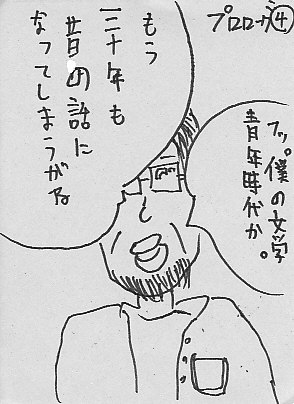 プロローグ④
フッ。僕の文学
青年時代か。
もう
三十年も
昔の話に
なってしまうがな